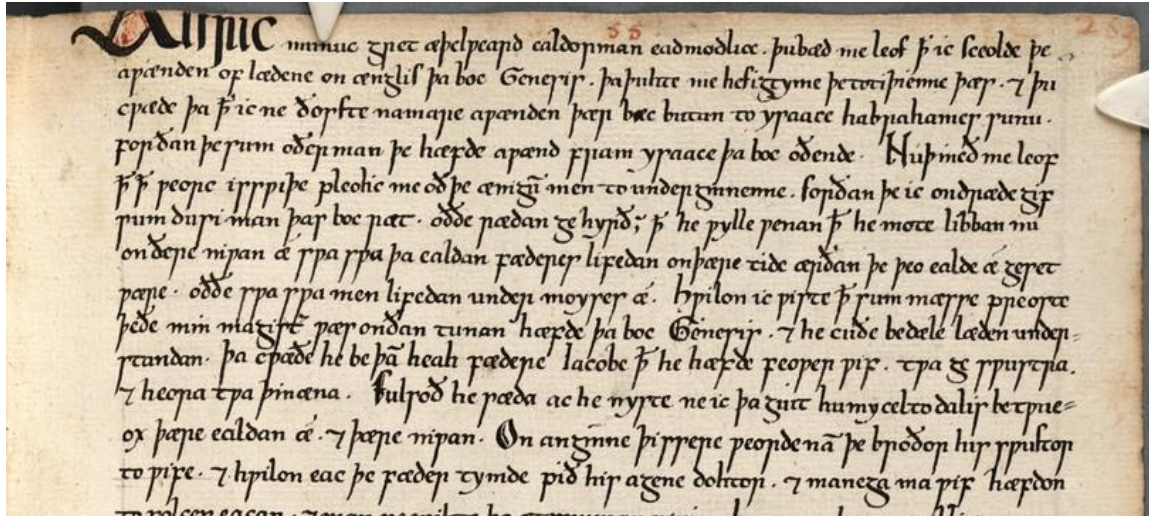 Ælfric munuc gret æþelƿeard ealdorman eadmodlice. þu bæd me leof ꝥ ic sceolde þe
aƿænden of lædene on ænglis þa boc Genesis. þa þuhte me hefigtyme þe to tiþienne þæs. ⁊ þu
cƿæde þa ꝥ ic ne ðorfte na mare aƿænden þær bec butan to ysaace habrahames sunu.
forðan þe sum oðer man þe hæfde aƿænd fram ysaace þa boc oð ende. Nu þincð me leof
ꝥ ꝥ ƿeorc is sƿiþe pleolic me oððe ænigū men to underginnenne. forðan þe ic ondræde gif
sum dusi man þas boc ræt. oððe rædan ge hyrð; ꝥ he ƿylle ƿenan ꝥ he mote libban nu
on ðere niƿan ǽ sƿa sƿa þa ealdan fæderes lifedan on þære tide ær ðan þe þeo ealde ǽ geset
ƿære. oððe sƿa sƿa men lifedan under moyses ǽ. Hƿilon ic ƿiste ꝥ sum mæsse preoste
þe ðe min magist ƿæs on ðan tunan hæfde þa boc Genesis. ⁊ he cuðe be dele læden under-
standan. þa cƿæðe he be þā heah fædere Iacobe ꝥ he hæfde feoƿer ƿif. tƿa ge sƿustra.
⁊ heora tƿa þinæna. Ful soð he sæda ac he nyste ne ic þa giit hu mycel to dal is betƿue-
ox þære ealdan ǽ. ⁊ þære niƿan. On anginne þissere ƿeorde nā þe broðor his sƿustor
to ƿife. ⁊ hƿilon eac þe fæder tymde ƿið his agene dohtor. ⁊ manega ma ƿif hæfdon